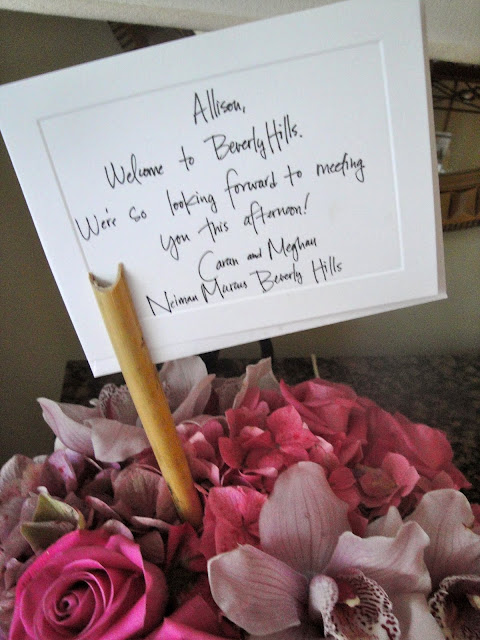 Allison,
Welcome to Beverly Hills.
We're so looking forward to meeting
you this afternoon!
Caran and Meghan
Neiman Marcus Beverly Hills